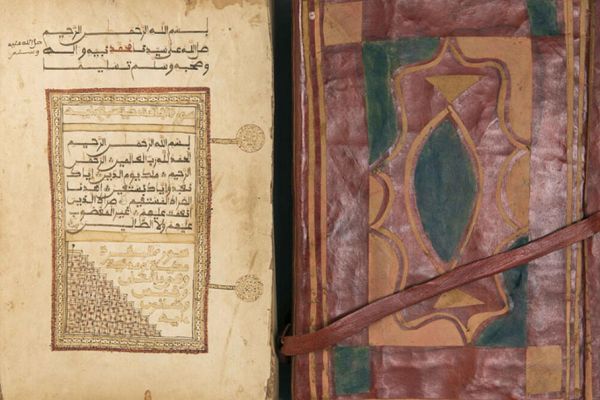 بسم الله الرحمن الرحيم
صلى الله على سيدنا محمد نبيه وآله
صلى الله عليه
وسلم
وصحبه وسلم تسليما
بسم الله الرحمن الرحيم
الحمد لله رب العلمين الرحمن
الرحيم ملك يوم الدين إياك
نعبد وإياك نستعين اهدنا
الصراط المستقيم صراط الذين
أنعمت عليهم غير المغضوب
عليهم ولا الضالين
سورة البقرة